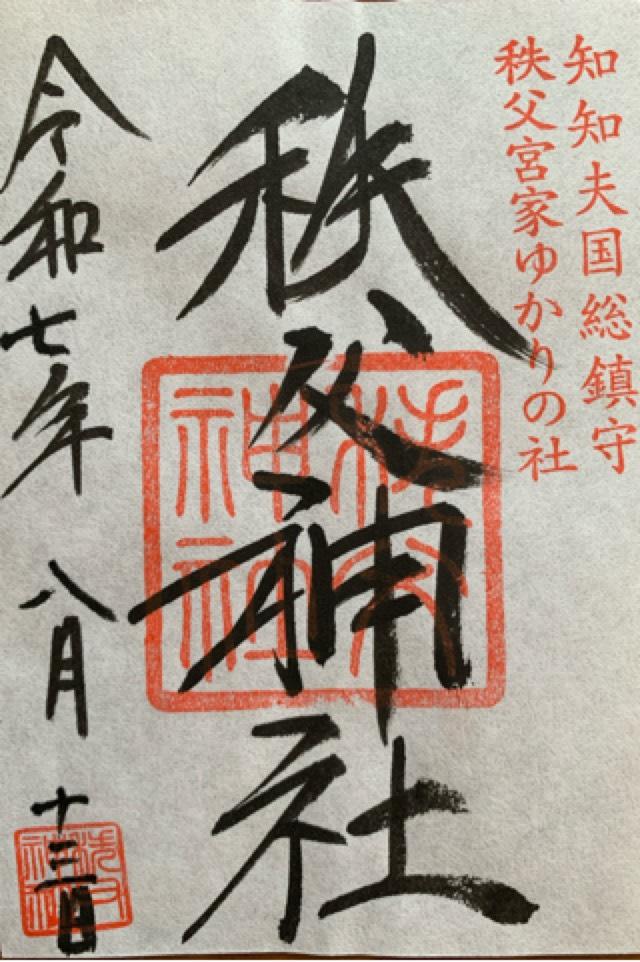 知知夫国総鎮守
秩父宮家ゆかりの社
秩父神社
秩父神社
令和七年 八月 十三日
秩父神社